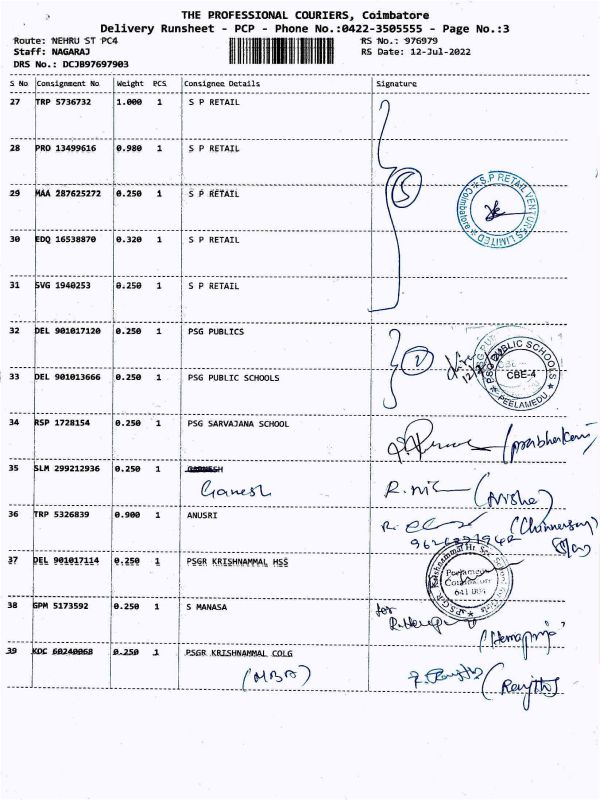 THE PROFESSIONAL COURIERS, Coimbatore
Delivery Runsheet - PCP - Phone No.:0422-3505555 - Page No.:3
Route: NEHRU ST PC4 RS No.: 976979
Staff: NAGARAJ RS Date: 12-Jul-2022
DRS No.: DCJB97697903
S No Consignment No Weight PCS Consignee Details Signature
27 TRP 5736732 1.000 1 S P RETAIL
28 PRO 13499616 0.980 1 S P RETAIL
5
29 MAA 287625272 0.250 1 S P RETAIL
S.P RETAIL VENTURES LIMITED * Coimbatore *
30 EDQ 16538870 0.320 1 S P RETAIL
31 SVG 1940253 0.250 1 S P RETAIL
32 DEL 901017120 0.250 1 PSG PUBLICS
2
PSG PUBLIC SCHOOLS * PEELAMEDU * CBE-4
33 DEL 901013666 0.250 1 PSG PUBLIC SCHOOLS
34 RSP 1728154 0.250 1 PSG SARVAJANA SCHOOL
35 SLM 299212936 0.250 1 GANESH
Ganesh R. (Nisha)
36 TRP 5326839 0.900 1 ANUSRI
37 DEL 901017114 0.250 1 PSGR KRISHNAMMAL HSS
Peelamedu
Coimbatore
641 004
38 GPM 5173592 0.250 1 S MANASA for
(Hemapriya)
39 KDC 60240068 0.250 1 PSGR KRISHNAMMAL COLG
(MBA) (Renjith)